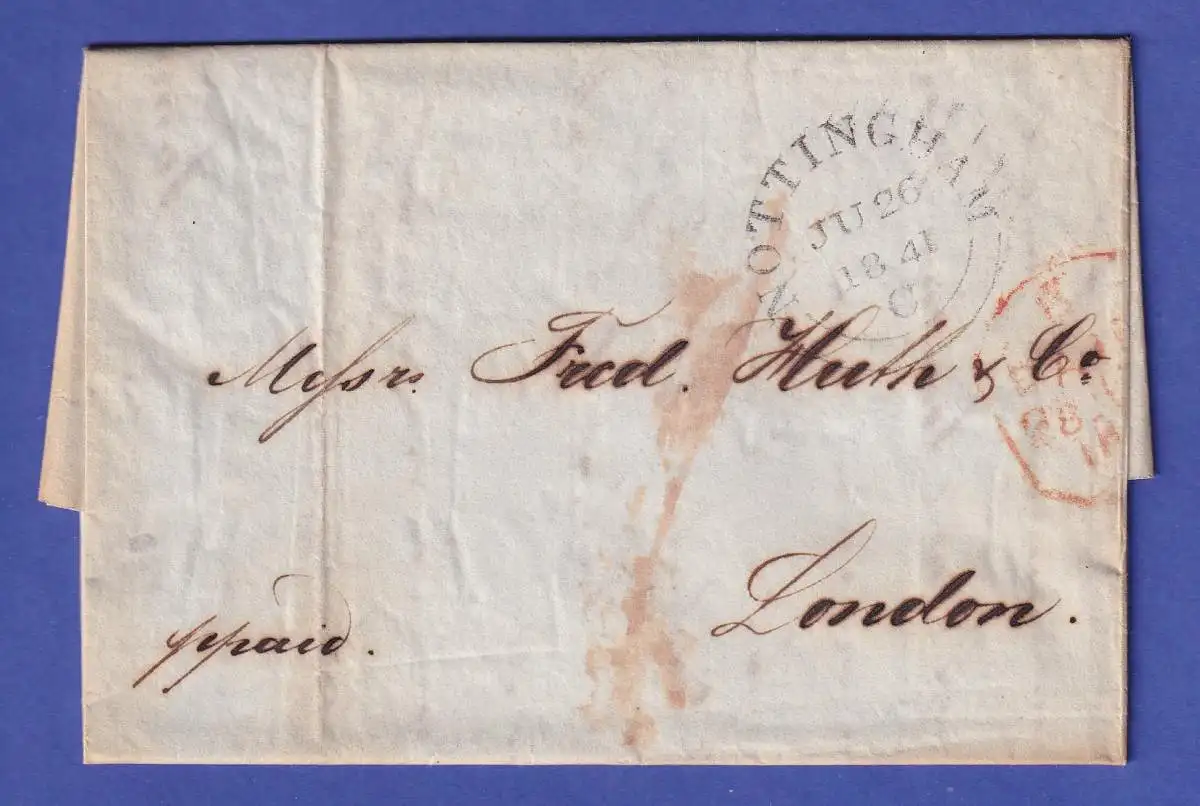 NOTTINGHAM
JU 26
1841
C
Messrs. Fred. Huth & Co.
London.
ppaid.